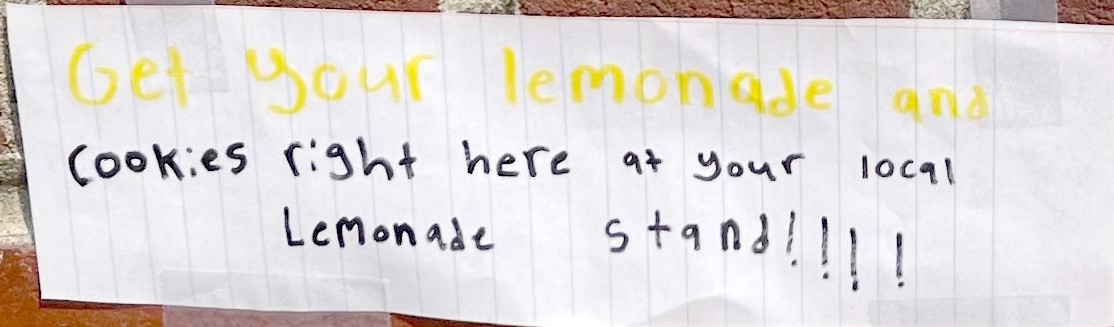 Get your lemonade and
cookies right here at your local
Lemonade stand!!!!